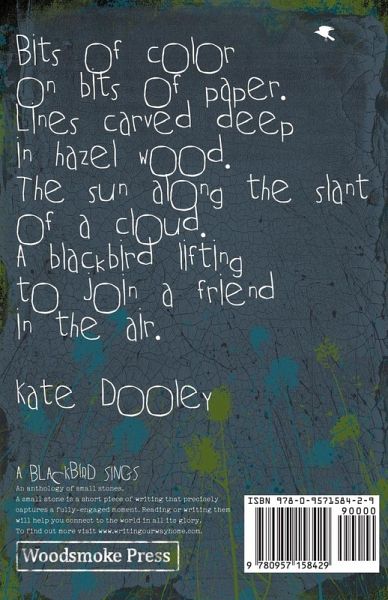 Bits Of color
On bits Of paper.
Lines carved deep
in hazel wood.
The sun along the slant
Of a cloud.
A blackbird lifting
to join a friend
in the air.
Kate Dooley
A BLACKBIRD SINGS
An anthology of small stones.
A small stone is a short piece of writing that precisely
captures a fully-engaged moment. Reading or writing them
will help you connect to the world in all its glory.
To find out more visit www.writingourwayhome.com.
Woodsmoke Press
ISBN 978-0-9571584-2-9
90000
9 780957 158429